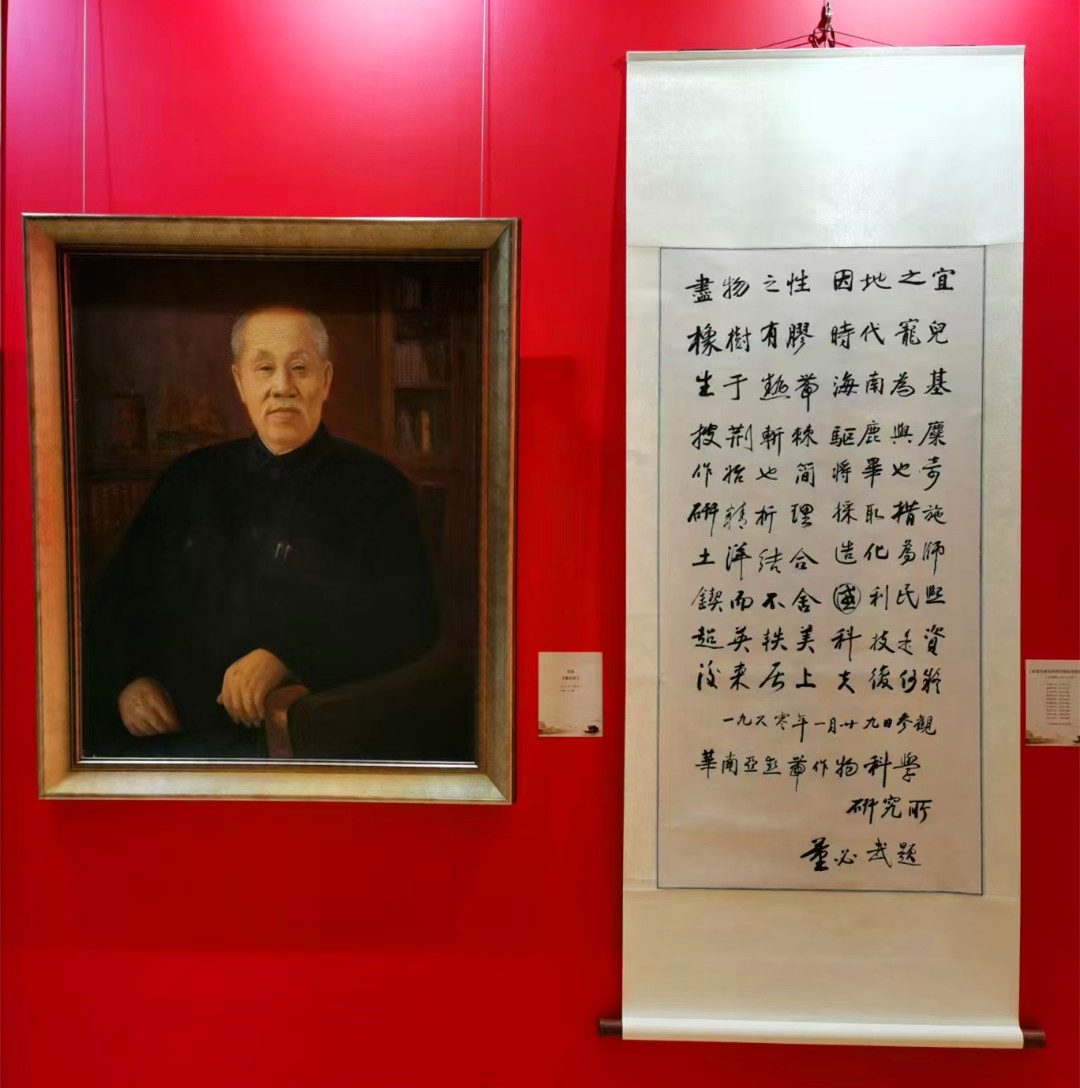 盡物之性 因地之宜
橡樹有膠 時代寵兒
生于熱帶 海南為基
披荆斬棘 驅鹿與麋
作始也简 將畢也奇
研精析理 採取措施
土洋结合 造化為师
鍥而不舍 國利民熙
超英軼美 科技是資
後来居上 夫復何疑
一九六零年一月廿九日参觀
華南亞熱帶作物科學
研究所
董必武題